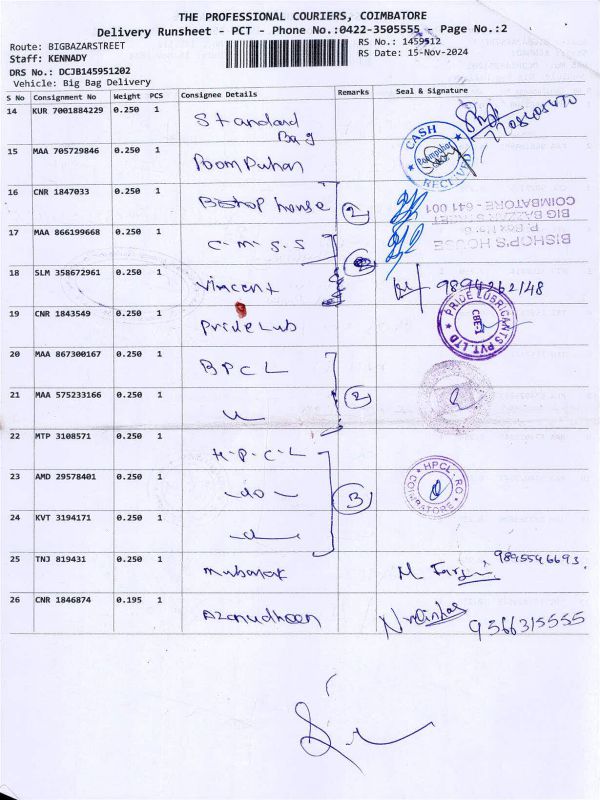 THE PROFESSIONAL COURIERS, COIMBATORE
Delivery Runsheet - PCT - Phone No.:0422-3505555 - Page No.:2
Route: BIGBAZARSTREET
Staff: KENNADY
DRS No.: DCJB145951202
Vehicle: Big Bag Delivery
RS No.: 1459512
RS Date: 15-Nov-2024
S No Consignment No Weight PCS Consignee Details Remarks Seal & Signature
14 KUR 7001884229 0.250 1 Standard Bag
15 MAA 705729846 0.250 1 Poompuhar
CASH RECEIVED
16 CNR 1847033 0.250 1 Bishop house 2
BISHOP'S HOUSE
BIG BAZZAR STREET
COIMBATORE - 641 001
17 MAA 866199668 0.250 1 C.M.S.S
18 SLM 358672961 0.250 1 Vincent 9894262148
19 CNR 1843549 0.250 1 Pride Lub
PRIDE LUBRICANTS PVT. LTD
CBE-1
20 MAA 867300167 0.250 1 BPCL 2
21 MAA 575233166 0.250 1
22 MTP 3108571 0.250 1 H.P.C.L
23 AMD 29578401 0.250 1 -do- 3
HPCL. RO. COIMBATORE
24 KVT 3194171 0.250 1
25 TNJ 819431 0.250 1 Mubarak 9895546693
26 CNR 1846874 0.195 1 Azarudheen 9566315555